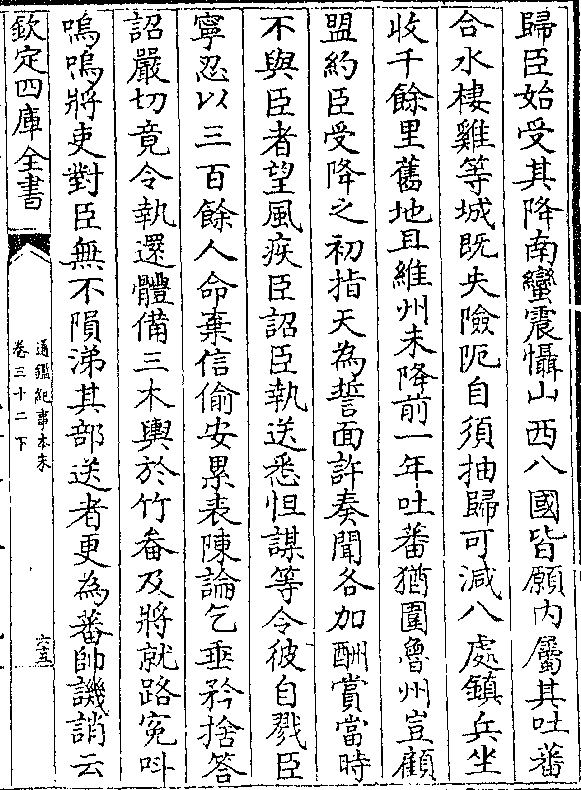 歸臣始受其降南蠻震懾山西八國皆願内屬其吐蕃
合水棲雞等城既失險阨自須抽歸可減八處鎮兵坐
收千餘里舊地且維州未降前一年吐蕃猶圍魯州豈顧
盟約臣受降之初指天為誓面許奏聞各加酬賞當時
不與臣者望風疾臣詔臣執送悉怛謀等令彼自戮臣
寧忍以三百餘人命棄信偷安累表陳論乞垂矜捨答
詔嚴切竟令執還體備三木輿於竹畚及將就路寃叫
嗚嗚將吏對臣無不隕涕其部送者更為蕃帥譏誚云
欽定四庫全書
通鑑紀事本末
卷三十二下
六五